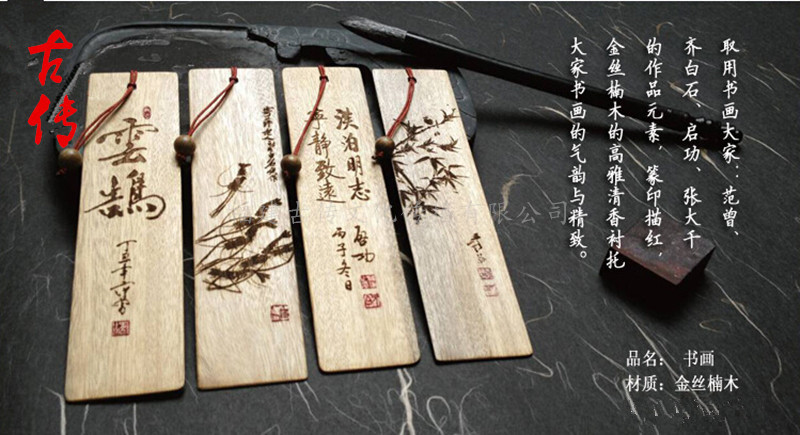 古传
取用书画大家：范曾、
齐白石、启功、张大千
的作品元素，篆印描红，
金丝楠木的高雅清香衬托
大家书画的气韵与精致。
雲鵠
淡泊明志
寧静致遠
啟功
丙子冬日
有限公司
品名： 书画
材质：金丝楠木